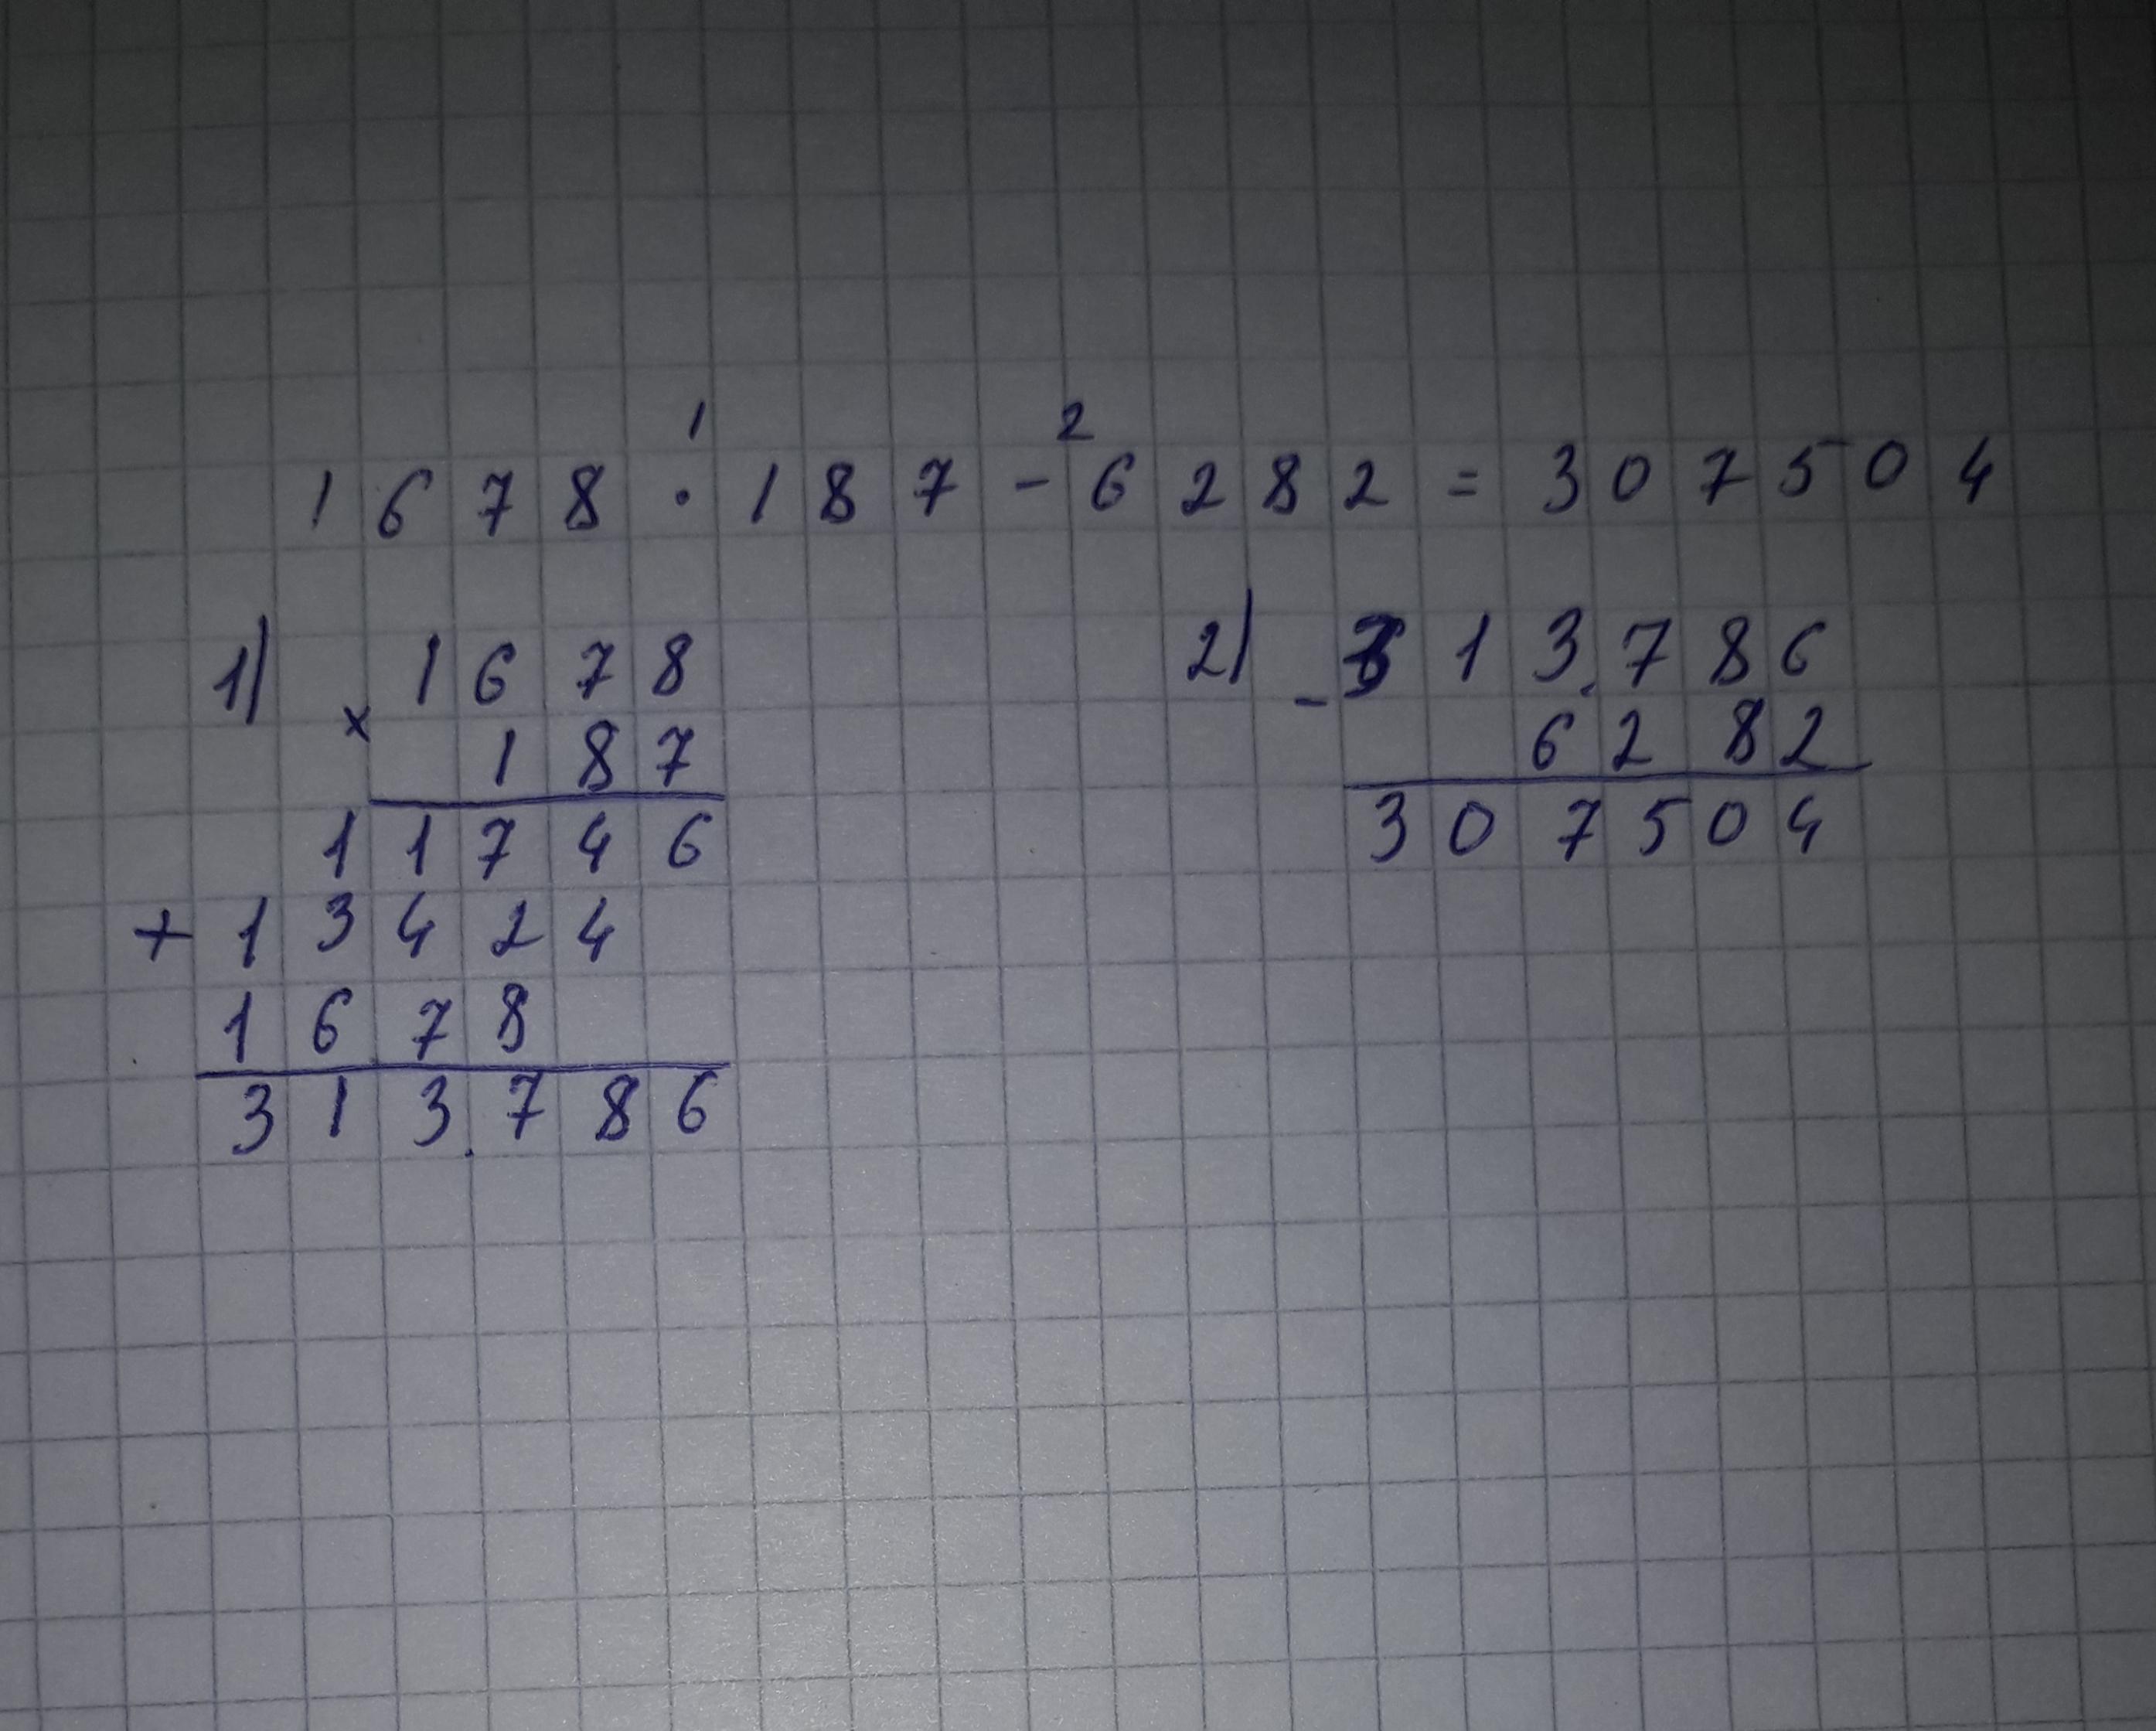 1 2
1678 · 187 - 6282 = 307504
1) × 1678
187
11746
+ 13424
1678
313.786
2) - 313.786
6282
307504